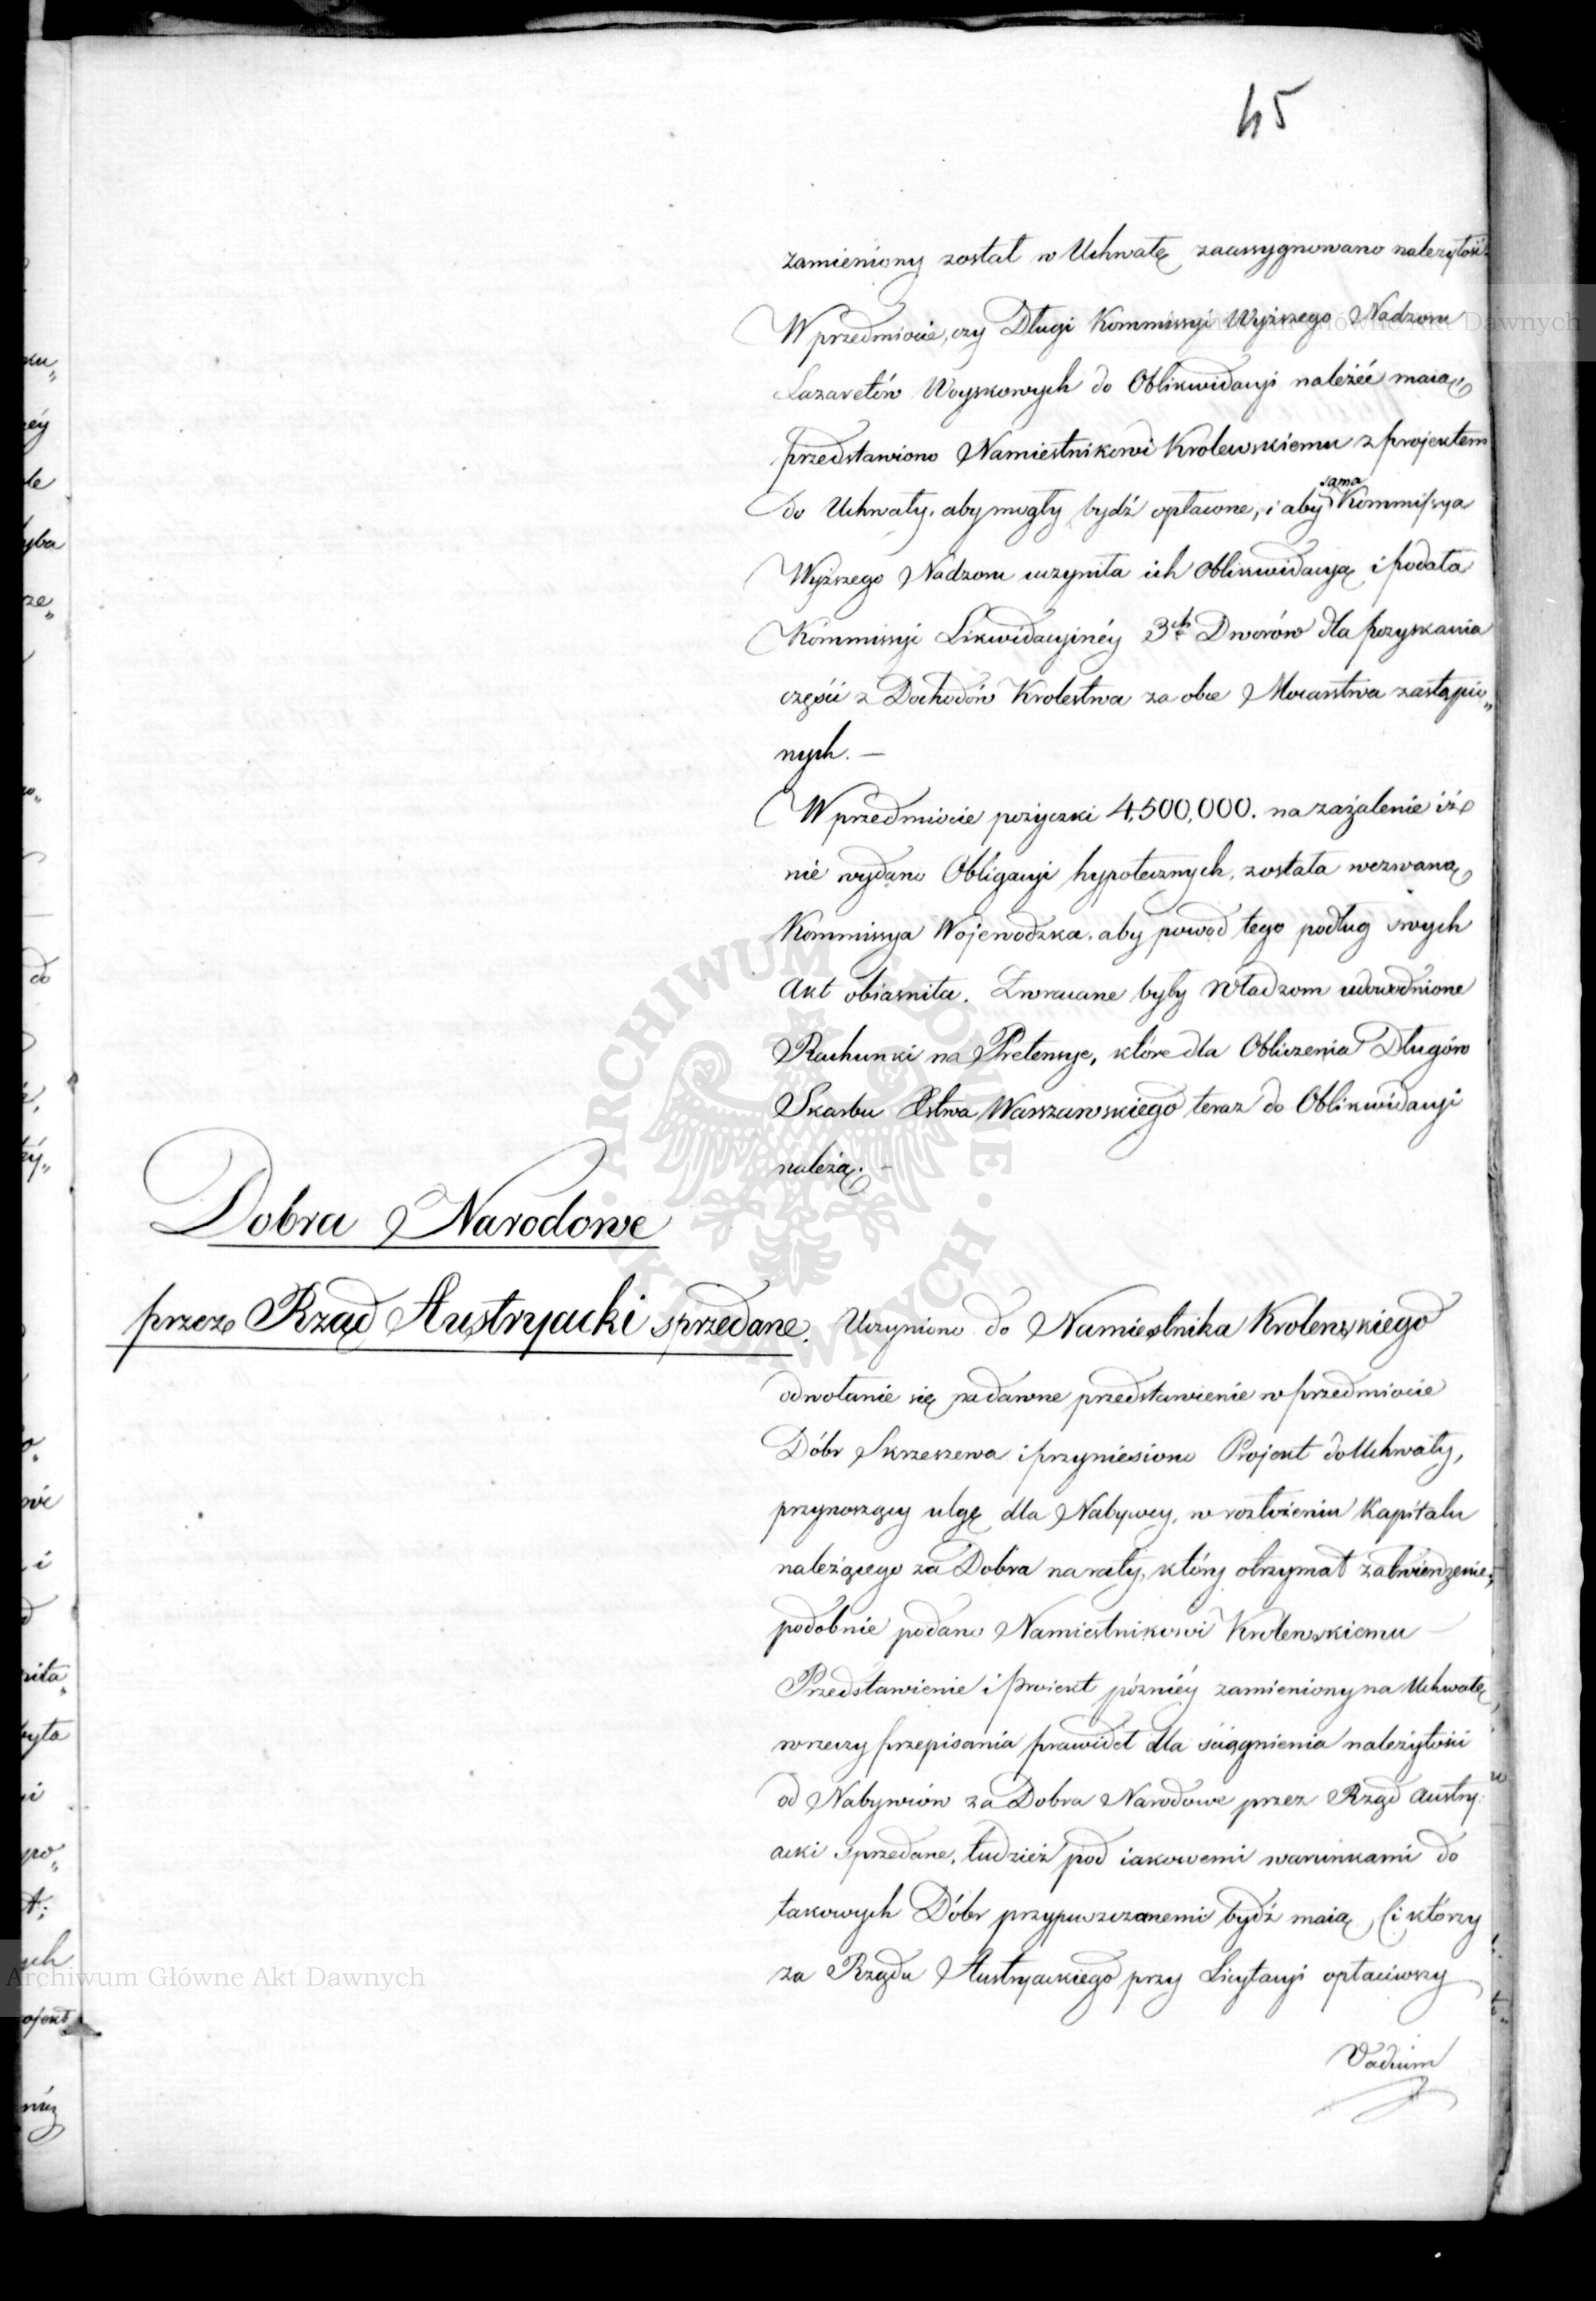 45
zamieniony został w Uchwałę zaassygnowano należytość.
W przedmiocie, czy Długi Kommissyi Wyższego Nadzoru
Lazaretów Woyskowych do Oblikwidacyi należéć maią,
przedstawiono Namiestnikowi Krolewskiemu z projektem
do Uchwały, aby mogły bydź opłacone, i aby sama Kommissya
Wyższego Nadzoru uczyniła ich Oblikwidacyą i podała
Kommissyi Likwidacyinéy 3ch Dworów dla pozyskania
części z Dochodów Krolestwa za obce Mocarstwa zastąpio„
nych. —
W przedmiocie pożyczki 4,500,000. na zażalenie iż
nie wydano Obligacyi hypotecznych, została wezwaną
Kommissya Wojewodzka, aby powod tego podług swych
Akt obiasniła. Zwracane były Władzom udowodnione
Rachunki na Pretensye, które dla Obliczenia Długów
Skarbu Xstwa Warszawskiego teraz do Oblikwidacyi
należą. —
Dobra Narodowe
przez Rząd Austryacki sprzedane.
Uczyniono do Namiestnika Krolewskiego
odwołanie się na dawne przedstawienie w przedmiocie
Dóbr Skrzeszewa i przyniesiono Projekt do Uchwały,
przynoszący ulgę dla Nabywcy, w rozłożeniu Kapitału
należącego za Dobra na raty, który otrzymał zatwierdzenie;
podobnie podano Namiestnikowi Krolewskiemu —
Przedstawienie i proiekt pózniéy zamieniony na Uchwałę,
w rzeczy przepisania prawideł dla ściągnienia należytości
od Nabywców za Dobra Narodowe przez Rząd Austry:
acki sprzedane, tudzież pod iakowemi warunkami do
takowych Dóbr przypuszczonemi bydź maią, Ci którzy
za Rządu Austryackiego przy Licytacyi opłaciwszy
Vadium
Archiwum Główne Akt Dawnych
ARCHIWUM GŁÓWNE AKT DAWNYCH